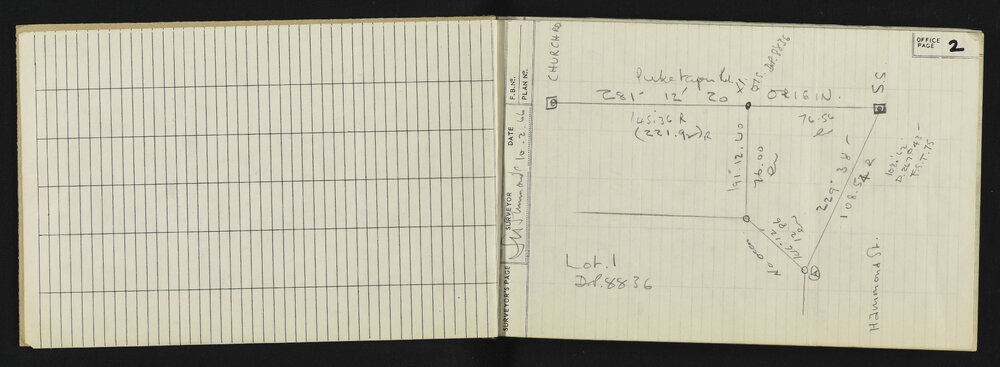 OFFICE
PAGE 2
SURVEYOR'S PAGE
SURVEYOR
DATE 10.2.66
F.B. Nº.
PLAN Nº.
CHURCH RD
Puketapu Rd.
D.P. 8836
281° 12' 20 ORIGIN.
SS
145.36 R
(221.90) R
76.54
191.12.40
76.00
229° 38 -
108.54 R
No occn
Ⓐ
Lot. 1
D.P. 8836
Hammond St.